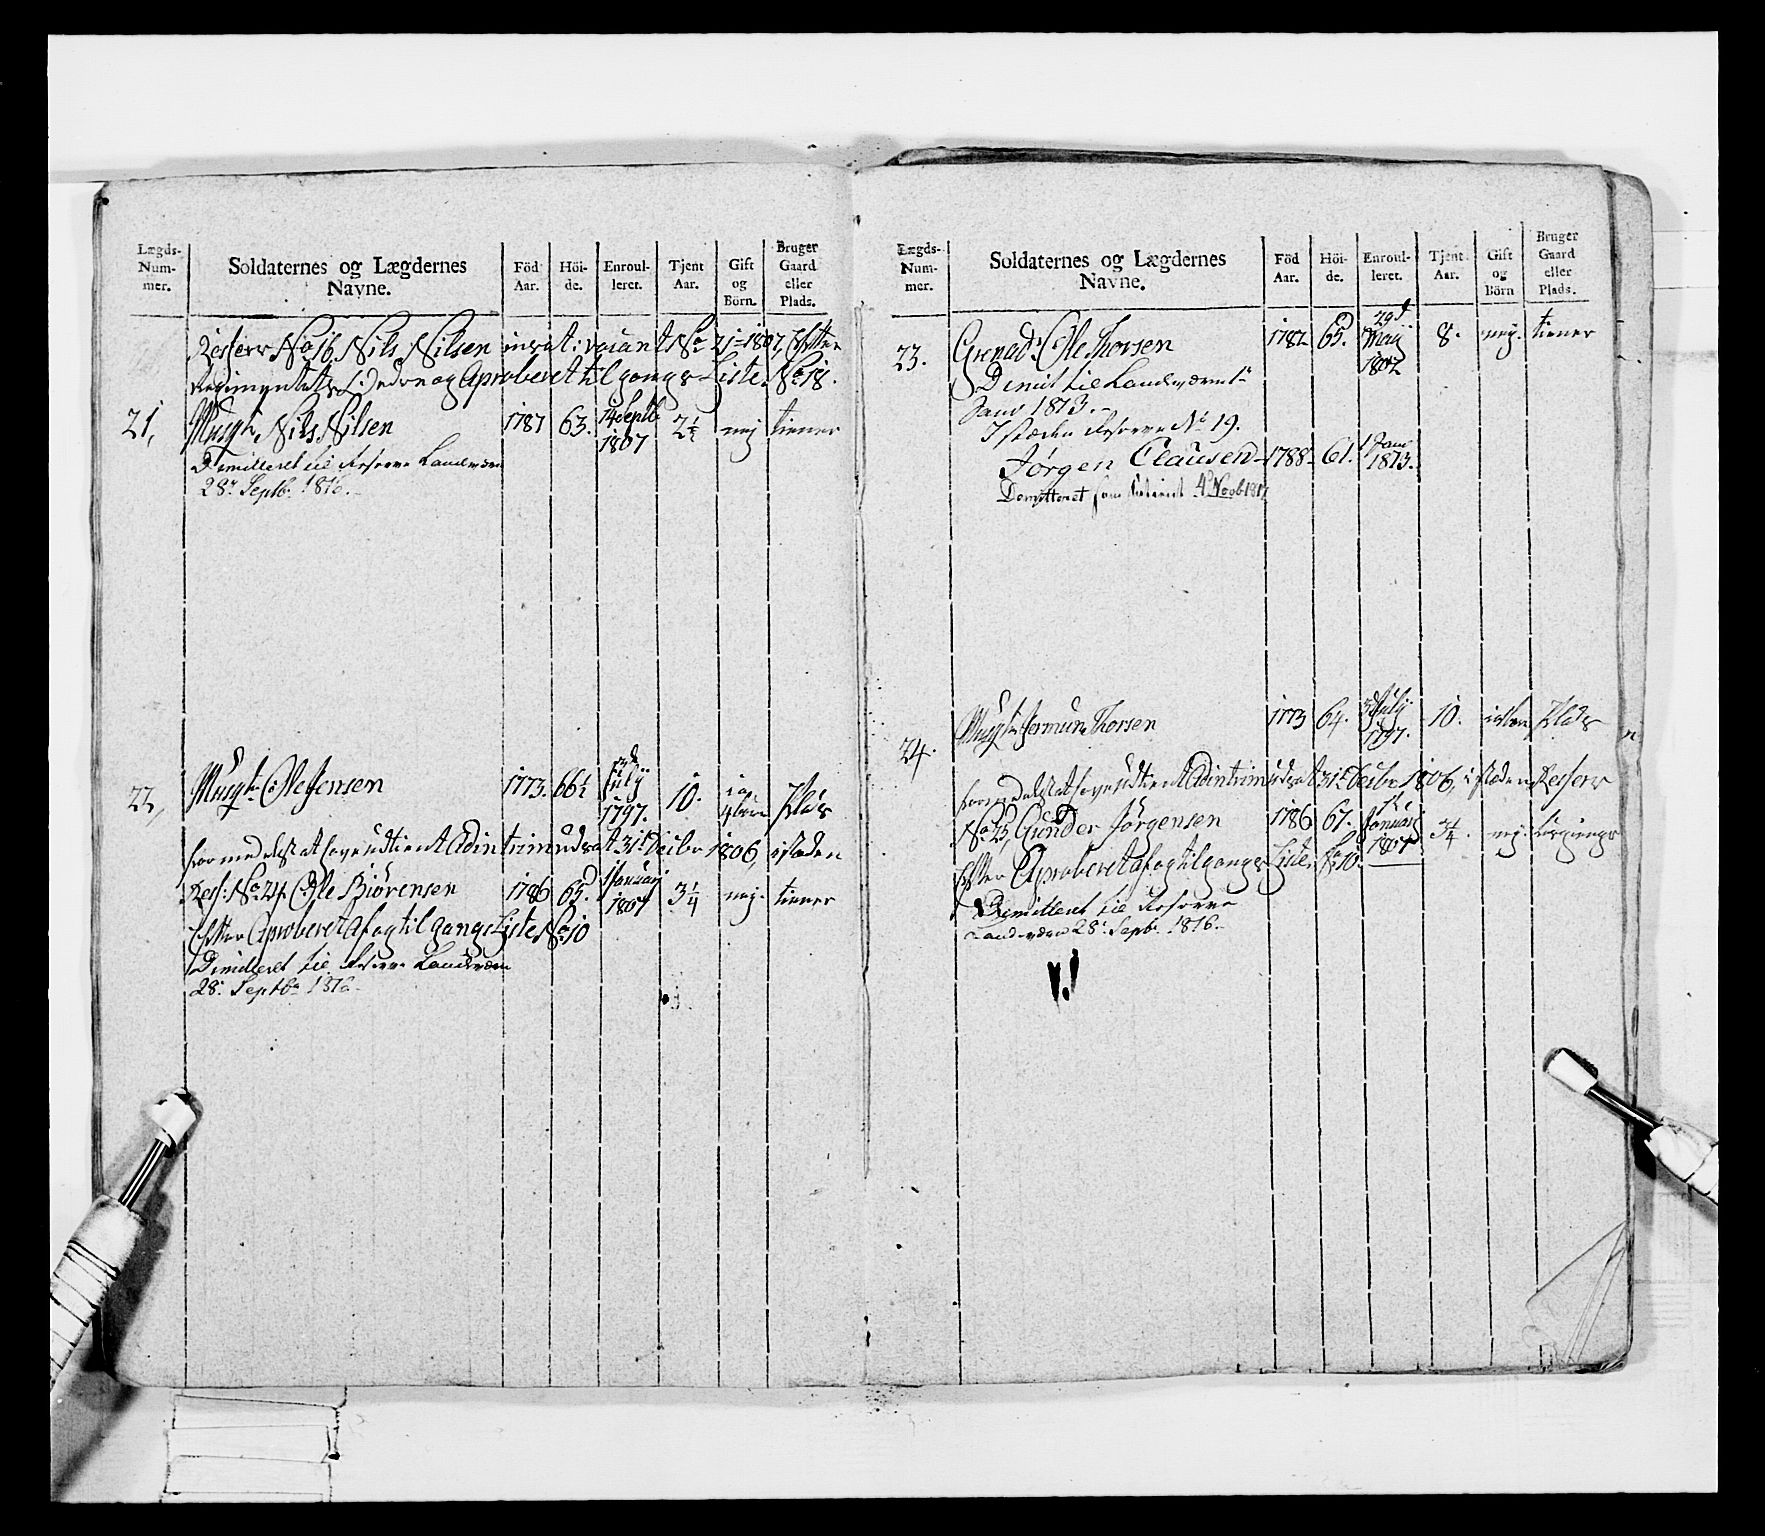 Lægds-Num-mer.
Soldaternes og Lægdernes Navne.
Föd Aar.
Höi-de.
Enroul-leret.
Tjent Aar.
Gift og Börn.
Bruger Gaard eller Plads.
Reserv No 16 Nils Nilsen insat i vacant No 21 - 1807, Efter
Regimentets Ordre og Aproberet tilgangs Liste No 18.
21, Musqt. Nils Nilsen 1787 63. 14 Septb 1807 2½ nej tiener
Dimitteret til Reserve Landværn
28de Septb. 1816.
22, Musqt. Ole Jensen 1773. 66½ July 1797. 10. ja Plads
formedelst at have udtient Adintrim udsat 31te Decbr 1806, i stæden
Res: No 24 Ole Biörensen 1786 65. 1 Januarj 1807 3¼ nej. tiener
Efter Aproberet Af og tilgangs Liste No 10
Dimitteret til Reserve Landværn
28de Septbr 1816.
Lægds-Num-mer.
Soldaternes og Lægdernes Navne.
Föd Aar.
Höi-de.
Enroul-leret.
Tjent Aar.
Gift og Börn
Bruger Gaard eller Plads.
23. Grenad: Ole Thorsen 1782 65. 29d Maij 1802 8. nej. tiener
Dimit til Landværn 1te
Janv 1813.
I stæden Reserve No 19.
Jörgen Clausen 1788 61. 1 Janv 1813.
Demitteret som 4 Novb 1817
24. Musqt Thorsen 1773 64. July 1797. 10. Plads
formedelst at have udtient Adintrim udsat 31te Decbr 1806, i stæden Reserv
No 25, Gunder Jörgensen 1786 67. Januarj 1807 3¼. nej
Efter Aproberet af og tilgangs Liste No 10.
Dimitteret til Reserve
Landværn 28de Septbr 1816.